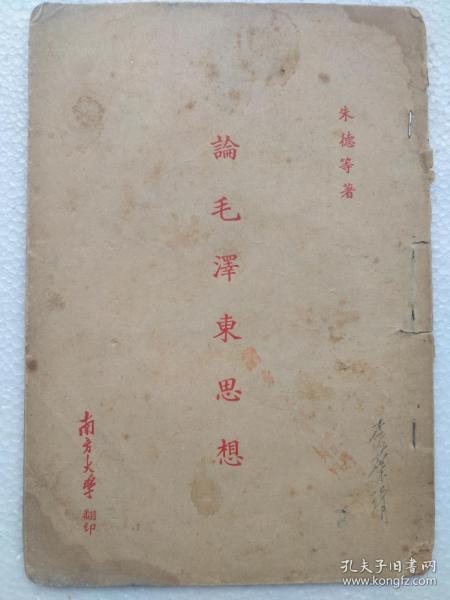 朱德等著
論毛澤東思想
南方大學
翻印
孔夫子旧书网
www.kongfz.com